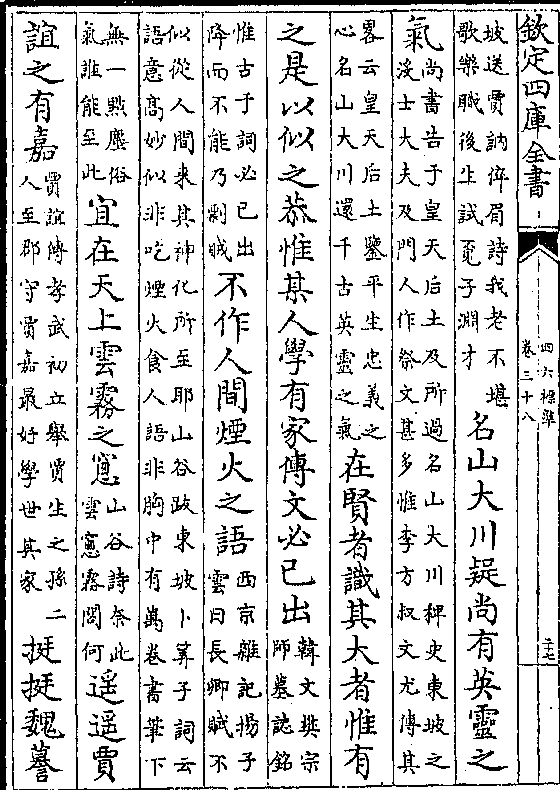 欽定四庫全書
四六標準
卷三十八
二十七
坡送賈訥倅眉詩我老不堪
歌樂職後生試覓子淵才
名山大川疑尚有英靈之
氣
尚書告于皇天后土及所過名山大川稗史東坡之
沒士大夫及門人作祭文甚多惟李方叔文尤傳其
畧云皇天后土鑒平生忠義之
心名山大川還千古英靈之氣
在賢者識其大者惟有
之是以似之恭惟某人學有家傳文必已出
韓文樊宗
師墓誌銘
惟古于詞必已出
降而不能乃剽賊
不作人間煙火之語
西京雜記揚子
雲曰長卿賦不
似從人間来其神化所至耶山谷跋東坡卜筭子詞云
語意髙妙似非吃煙火食人語非胸中有萬卷書筆下
無一點塵俗
氣誰能至此
宜在天上雲霧之窻
山谷詩奈此
雲窻霧閣何
遥遥賈
誼之有嘉
賈誼傳孝武初立舉賈生之孫二
人至郡守賈嘉最好學世其家
挺挺魏謩